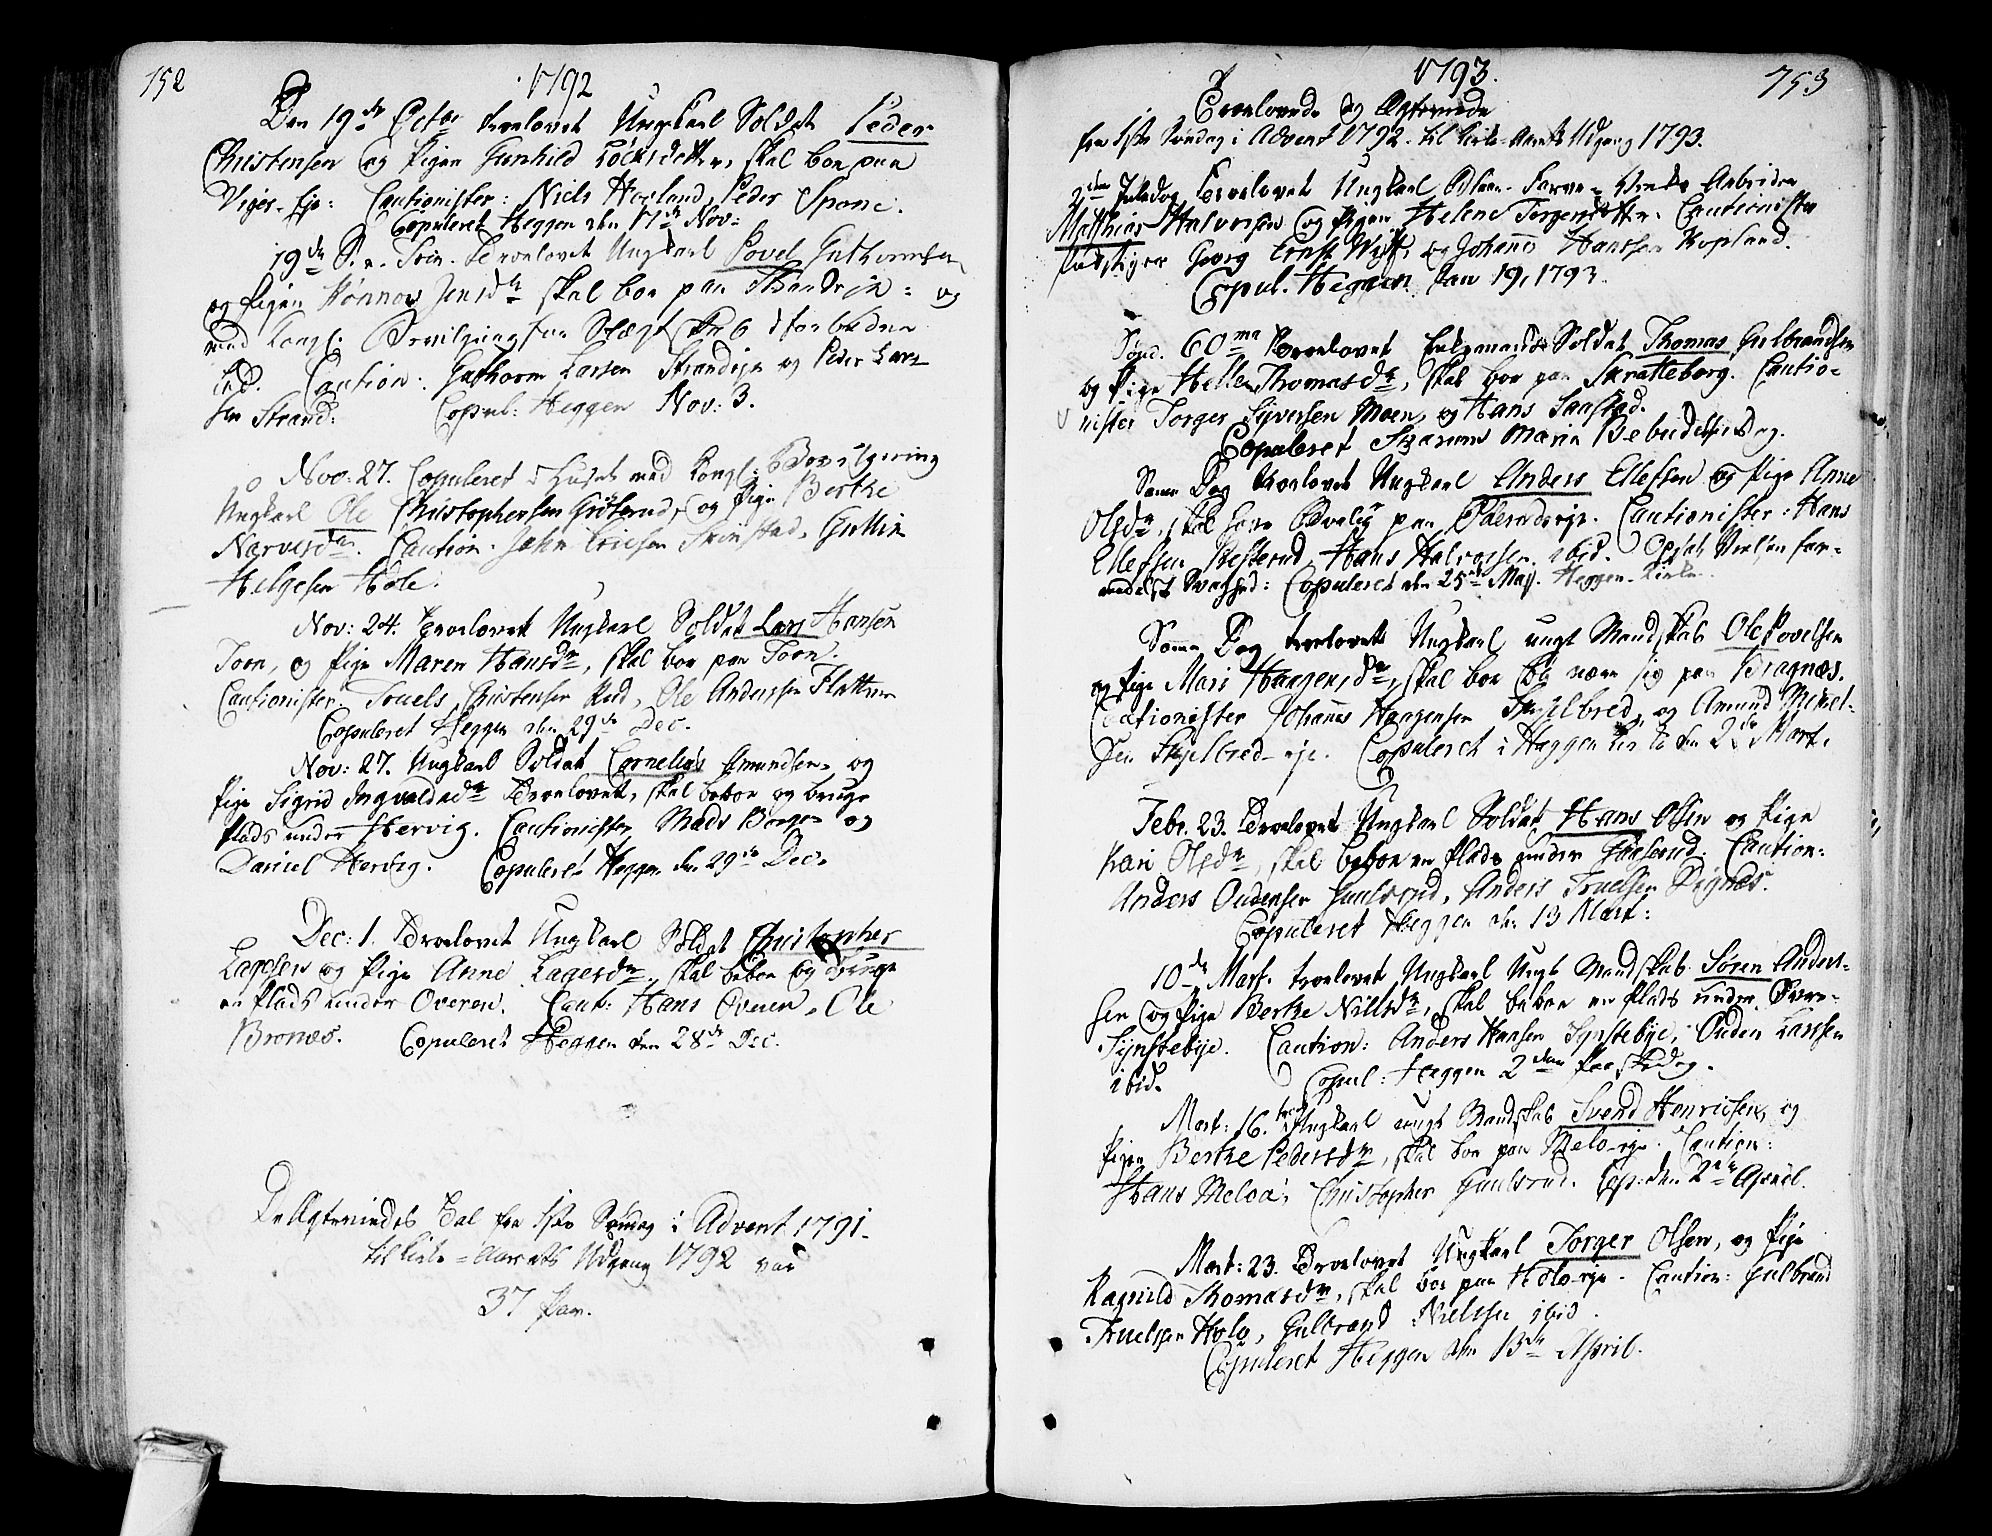 152
1792
Den 19de Octbr trolovet Ungkarl Soldat Peder
Christensen og Pigen Gunhild Lochsdatter, skal boe paa
Viger-Eje: Cautionister: Niels Horland, Peder Spone.
Copuleret Heggen den 17de Nov:
19de S. e. Trin. Trolovet Ungkarl Povel Guthormsen
og Pigen Rønnov Jensdr skal boe paa Strandeje: og
med Kongl. Bevilgning for Slægtskab i forbuden
Led. Caution: Guthorm Larsen Strandeje og Peder Lar-
sen Strand: Copul: Heggen Nov: 3.
Nov: 27. Copuleret i Huset med Kongl: Bevilgning
Ungkarl Ole Christophersen Grøterud, og Pige Berthe
Narvesdr. Caution: John Ericsen Trinstad, Guttin
Helgesen Hole.
Nov: 24. Trolovet Ungkarl Soldat Lars Hansen
Toen, og Pige Maren Hansdr, skal boe paa Toen.
Cautionister: Truels Christensen Rud, Ole Anderssen Flattum
Copuleret Heggen den 29de Dec.
Nov: 27. Ungkarl Soldat Cornelius Amundsen og
Pige Sigrid Ingvaldsdr Trolovet, skal beboe og bruge
Plads under Hervig. Cautionister Mads Borgen og
Daniel Hervig. Copuleret Heggen den 29de Dec.
Dec: 1. Trolovet Ungkarl Soldat Christopher
Lagesen og Pige Anne Lagesdr, skal beboe og bruge
en Plads under Overen. Caut: Hans Overen, Ole
Bronæs. Copuleret Heggen den 28de Dec.
De Ægteviedes Tal fra 1ste Søndag i Advent 1791
til Kirke-Aarets Udgang 1792 var
37 Par.
1793.
753
Trolovede og Ægteviede
fra 1ste Søndag i Advent 1792 til Kirke-Aarets Udgang 1793.
2den Juledag Trolovet Ungkarl Blaae-Farve-Værks Arbeider
Matthias Halvorsen og Pigen Helene Torgersdatter. Cautionister
Georg Ernst og Johannes Hanssen Kopland.
Copul. Heggen Jan 19, 1793.
Sønd. 60ma Trolovet Enkemand Soldat Thomas Gulbrandsen
og Pige Helle Thomasdr, skal boe paa Skratteborg. Cautio-
nister Torger Syversen Moen, og Hans Saastad.
Copuleret Snarum Mariæ Bebudelses dag.
Samme Dag trolovet Ungkarl Anders Ellefsen og Pige Anne
Olsdr, skal have Bolig paa Cautionister: Hans
Ellefsen Hans Halvorsen ibid. Opsat Vielsen for-
medelst Svaghed: Copuleret den 25de Maj. Heggen-Kirke.
Samme Dag trolovet Ungkarl ungt Mandskab Ole Povelsen
og Pige Mari Haagensdr, skal boe og nære sig paa Bragnæs.
Cautionister Johannes Haagensen Skjelbred, og Amund Mikel-
sen Skjelbred-eje. Copuleret i Heggen Kirke den 2de Mart.
Febr. 23. Trolovet Ungkarl Soldat Hans Olsen og Pige
Kari Olsdr, skal beboe en Plads under Gaaserud. Caution:
Anders Oudensen Gaulsrud, Anders Truelsen Røgnæs.
Copuleret Heggen den 13 Mart:
10de Mart. trolovet Ungkarl Ungt Mandskab Søren Anders-
sen og Pige Berthe Nilsdr, skal beboe en Plads under
Synstebye. Caution: Anders Hansen Synstebye, Ouden Larssen
ibid. Copul: Heggen 2den Paaskedag.
Mart: 16. trol. Ungkarl ungt Mandskab Svend Henricsen, og
Pigen Berthe Pedersdr, skal boe paa Melo-eje. Caution:
Hans Meloe, Christopher Gaulsrud. Cop: den 2de April.
Mart: 23. Trolovet Ungkarl Torger Olsen, og Pige
Ragnild Thomasdr, skal boe paa Holo-eje. Caution: Gulbrand
Truelsen Holo, Gulbrand Nielsen ibid.
Copuleret Heggen den 13de April.